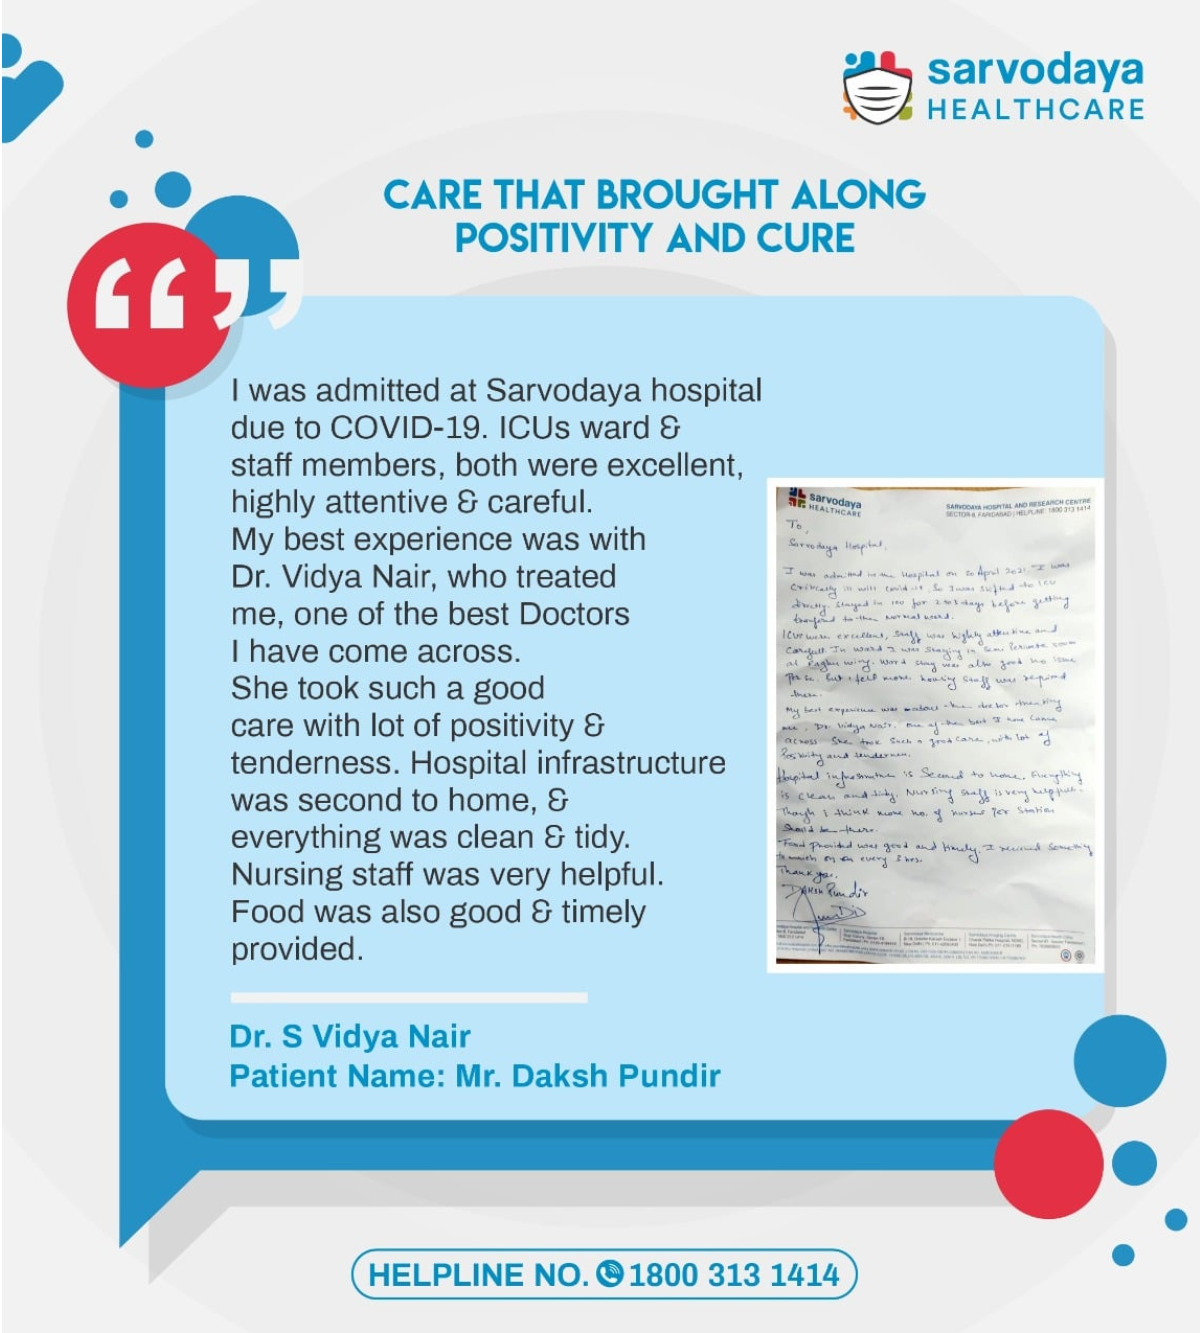 sarvodaya
HEALTHCARE
CARE THAT BROUGHT ALONG
POSITIVITY AND CURE
I was admitted at Sarvodaya hospital
due to COVID-19. ICUs ward &
staff members, both were excellent,
highly attentive & careful.
My best experience was with
Dr. Vidya Nair, who treated
me, one of the best Doctors
I have come across.
She took such a good
care with lot of positivity &
tenderness. Hospital infrastructure
was second to home, &
everything was clean & tidy.
Nursing staff was very helpful.
Food was also good & timely
provided.
Dr. S Vidya Nair
Patient Name: Mr. Daksh Pundir
sarvodaya
HEALTHCARE
SARVODAYA HOSPITAL AND RESEARCH CENTRE
SECTOR 8, FARIDABAD | HELPLINE: 1800 313 1414
To,
Sarvodaya Hospital,
I was admitted in the Hospital on 20 April 2021. I was
critically ill with Covid-19, So I was shifted to ICU
directly. Stayed in ICU for 2 days before getting
to the normal ward.
ICU were excellent, Staff was highly attentive and
Carefull. In ward I was staying in Semi Private room
at wing. Ward stay was also good no issue
Per Se. But I felt more housing staff was required
there.
My best experience was about the doctor treating
me, Dr. Vidya Nair. One of the best I have came
across. She took Such a good care, with lot of
Positivity and tenderness.
Hospital is Second to none. Everything
is clean and tidy. Nursing staff is very helpfull.
Though I think more no. of nurses Per Station
Should be there.
Food provided was good and timely. I received Something
to munch on every 3 hrs.
Thank you,
DAKSH Pundir
HELPLINE NO. 1800 313 1414